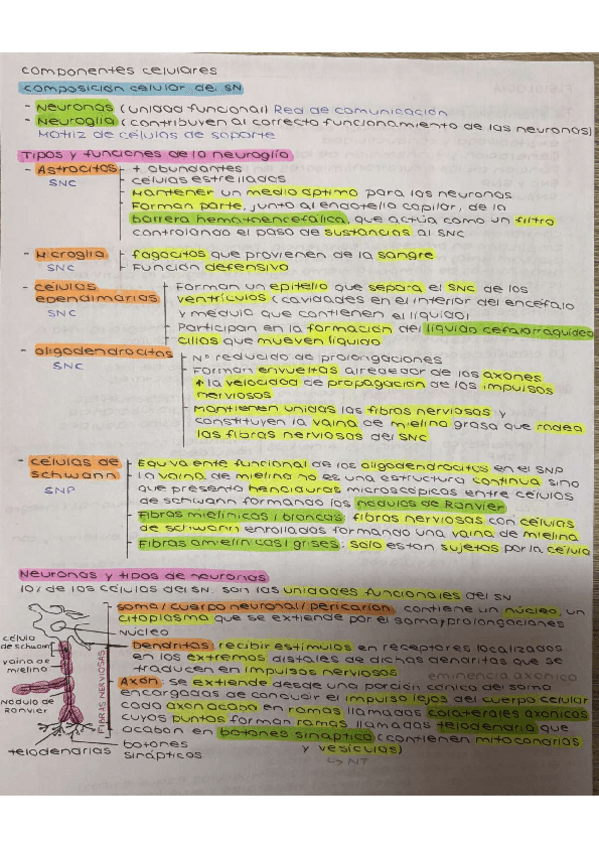 componentes celulares
composición celular del SN
- Neuronas (unidad funcional) Red de comunicación
- Neuroglia (contribuyen al correcto funcionamiento de las neuronas)
Matriz de células de soporte
Tipos y funciones de la neuroglía
- Astrocitos
SNC
+ abundantes
células estrelladas
Mantener un medio óptimo para las neuronas
Forman parte, junto al endotelio capilar, de la
barrera hematoencefálica, que actúa como un filtro
controlando el paso de sustancias al SNC
- Microglia
SNC
fagocitos que provienen de la sangre
Función defensiva
- células
ependimarias
SNC
Forman un epitelio que separa el SNC de los
ventrículos (cavidades en el interior del encéfalo
y médula que contienen el líquido)
Participan en la formación del líquido cefalorraquídeo
cilios que mueven líquido
- oligodendrocitos
SNC
Nº reducido de prolongaciones
Forman envueltas alrededor de los axones
↑ la velocidad de propagación de los impulsos
nerviosos
Mantienen unidas las fibras nerviosas y
constituyen la vaina de mielina grasa que rodea
las fibras nerviosas del SNC
- células de
schwann
SNP
Equivalente funcional de los oligodendrocitos en el SNP
La vaina de mielina no es una estructura continua sino
que presenta hendiduras microscópicas entre células
de schwann formando los nódulos de Ranvier
Fibras mielínicas / blancas: fibras nerviosas con células
de schwann enrollados formando una vaina de mielina
Fibras amielínicas / grises: solo están sujetas por la célula
Neuronas y tipos de neuronas
10% de los células del SN. son las unidades funcionales del SN
soma / cuerpo neuronal / pericarion: contiene un núcleo, un
citoplasma que se extiende por el soma y prolongaciones
núcleo
Dendritas: recibir estímulos en receptores localizados
en los extremos distales de dichas dendritas que se
traducen en impulsos nerviosos
eminencia axónica
Axón: se extiende desde una porción cónica del soma
encargadas de conducir el impulso lejos del cuerpo celular
cada axón acaba en ramas llamadas colaterales axónicas
cuyos puntas forman ramas llamadas telodendria que
acaban en botones sináptico (contienen mitocondrias
y vesículas)
↳ NT
célula
de schwann
vaina de
mielina
Nódulo de
Ranvier
FIBRAS NERVIOSAS
telodendrias
botones
sinápticos